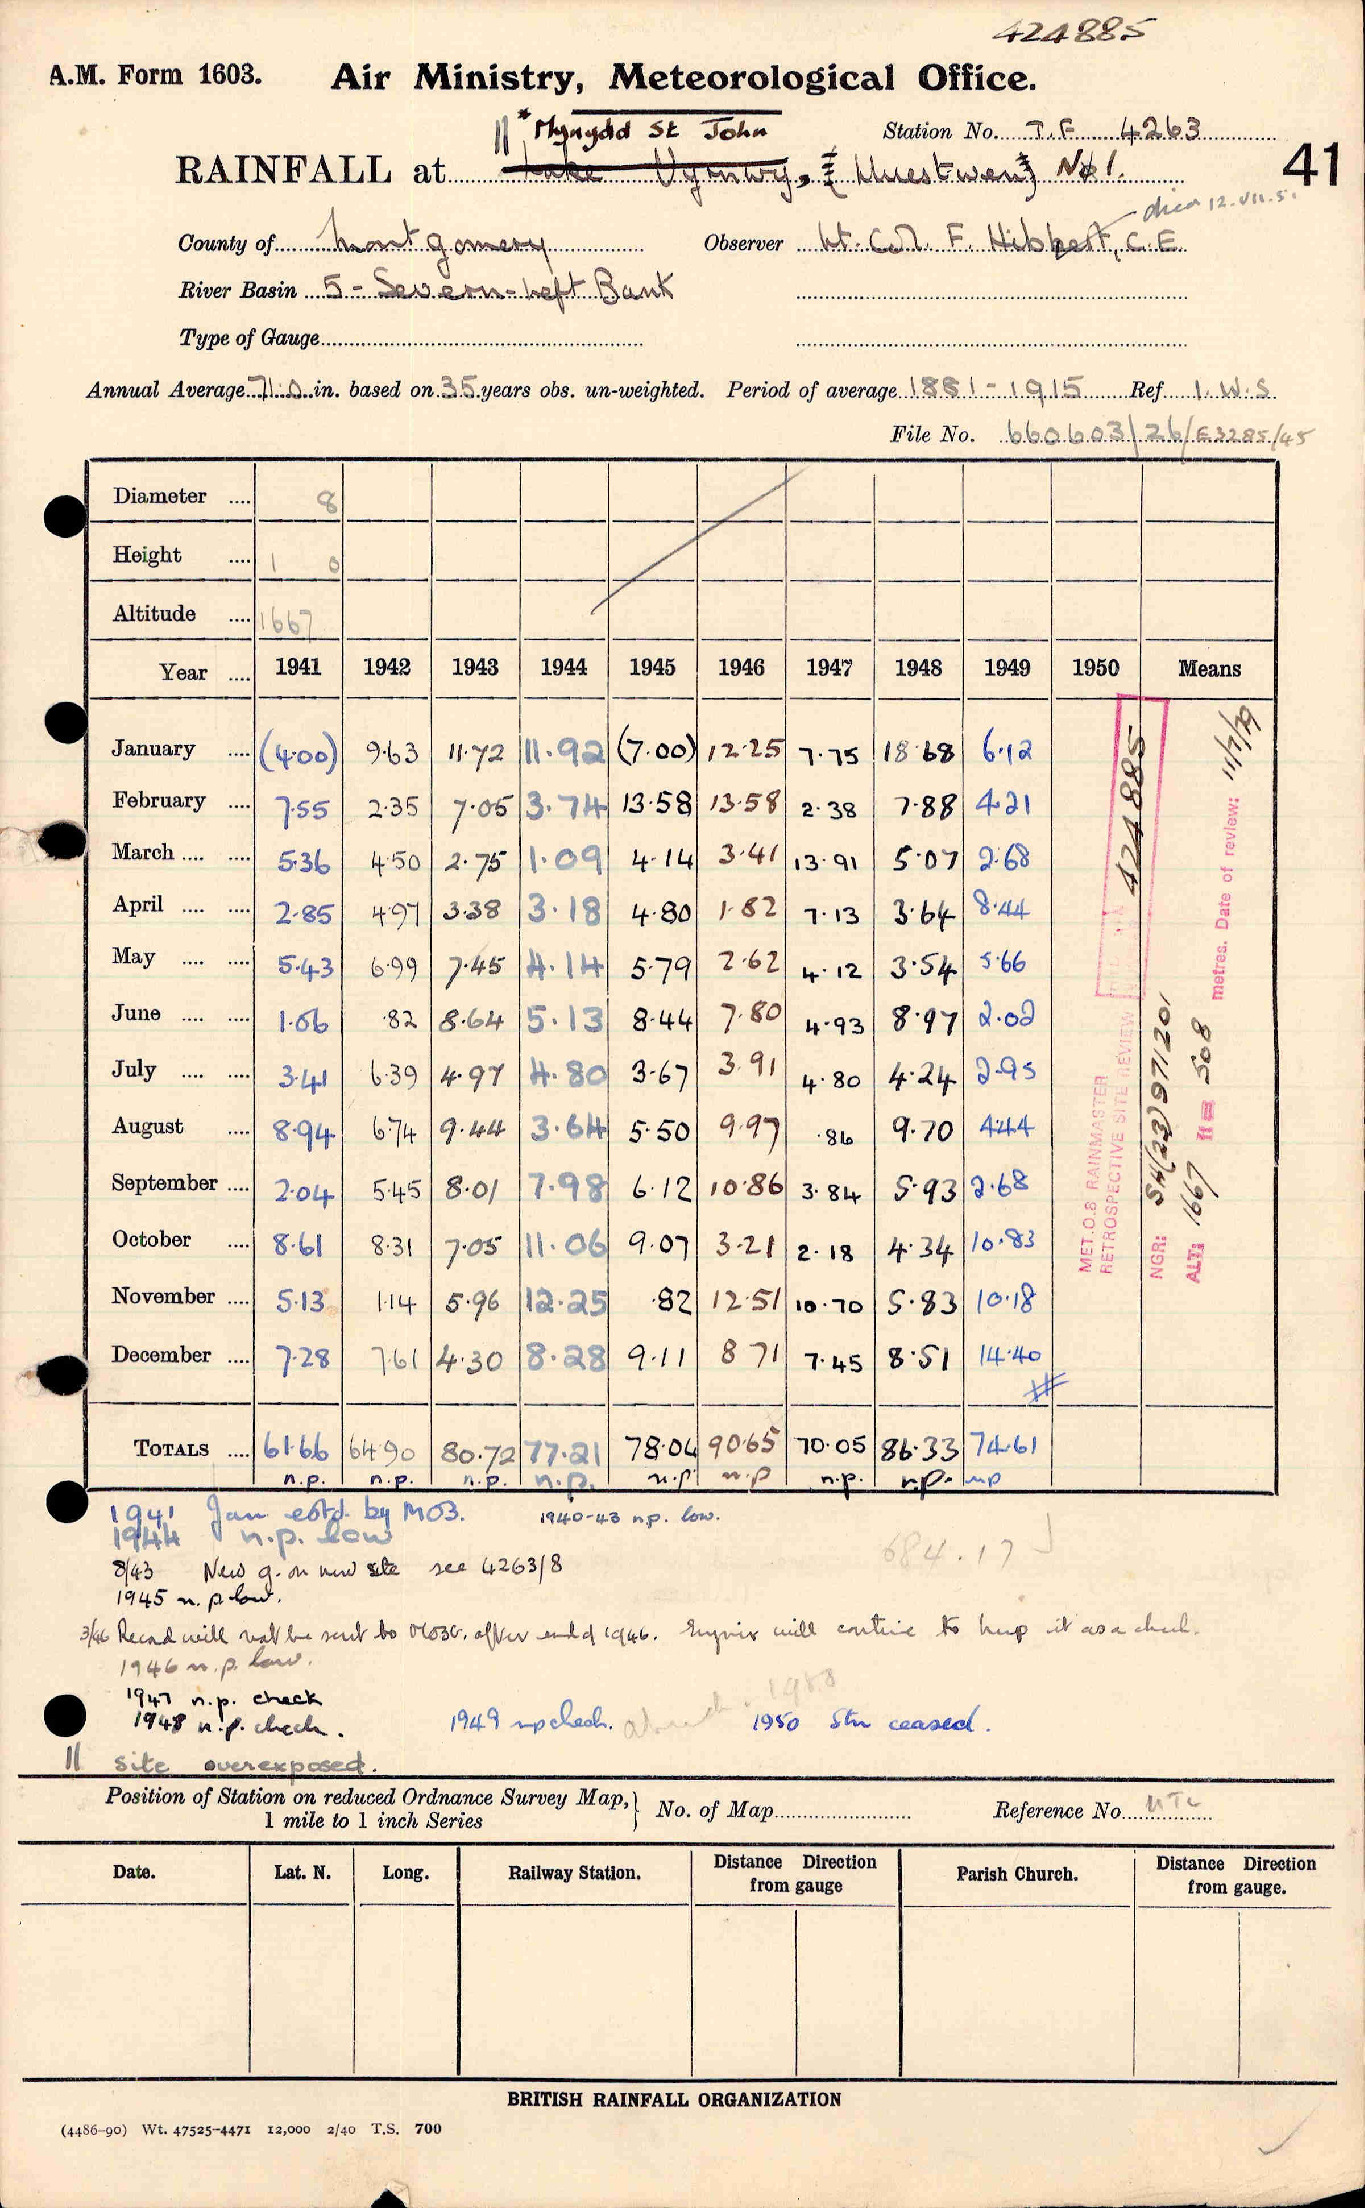 424885
A.M. Form 1603. Air Ministry, Meteorological Office.
* Mynydd St John
Station No. T.F 4263
41
RAINFALL at Lake Vyrnwy, No 1.
12.VII.5
County of Montgomery Observer Lt. Col. F. Hibbert, C.E.
River Basin 5 - Severn - Left Bank
Type of Gauge
Annual Average 71.0 in. based on 35 years obs. un-weighted. Period of average 1881-1915 Ref. I.W.S
File No. 660603/26/E3285/45
Diameter .... 8
Height .... 1 0
Altitude .... 1667
Year .... 1941 1942 1943 1944 1945 1946 1947 1948 1949 1950 Means
January .... (4.00) 9.63 11.72 11.92 (7.00) 12.25 7.75 18.68 6.12
February .... 7.55 2.35 7.05 3.74 13.58 13.58 2.38 7.88 4.21
March .... .... 5.36 4.50 2.75 1.09 4.14 3.41 13.91 5.07 2.68
April .... .... 2.85 4.97 3.38 3.18 4.80 1.82 7.13 3.64 8.44
May .... .... 5.43 6.99 7.45 4.14 5.79 2.62 4.12 3.54 5.66
June .... .... 1.06 .82 8.64 5.13 8.44 7.80 4.93 8.97 2.02
July .... .... 3.41 6.39 4.97 4.80 3.67 3.91 4.80 4.24 2.95
August .... 8.94 6.74 9.44 3.64 5.50 9.97 .86 9.70 4.44
September .... 2.04 5.45 8.01 7.98 6.12 10.86 3.84 5.93 2.68
October .... 8.61 8.31 7.05 11.06 9.07 3.21 2.18 4.34 10.83
November .... 5.13 1.14 5.96 12.25 .82 12.51 10.70 5.83 10.18
December .... 7.28 7.61 4.30 8.28 9.11 8.71 7.45 8.51 14.40
TOTALS .... 61.66 64.90 80.72 77.21 78.04 90.65 70.05 86.33 74.61
n.p. n.p. n.p. n.p. n.p. n.p n.p. n.p. np
424885
MET.O.8 RAINMASTER
RETROSPECTIVE SITE REVIEW
NGR: SH(23)971201
ALT: 1667 ft = 508 metres. Date of review: 11/7/79
1941 Jan estd. by MO3. 1940-43 n.p. low.
1944 n.p. low
684.17
8/43 New g. on new site see 4263/8
1945 n. p. low.
3/46 Record will not be sent to after end of 1946. will continue to keep it as a check.
1946 n.p. low.
1947 n.p. check
1948 n.p. check.
1949 np check. 1950 Stn ceased.
|| site overexposed.
Position of Station on reduced Ordnance Survey Map,
1 mile to 1 inch Series
No. of Map
Reference No.
Date. Lat. N. Long. Railway Station. Distance Direction from gauge Parish Church. Distance Direction from gauge.
BRITISH RAINFALL ORGANIZATION
(4486-90) Wt. 47525-4471 12,000 2/40 T.S. 700